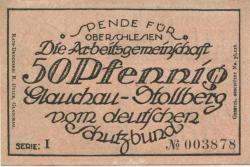 SPENDE FÜR
OBERSCHLESIEN
Die Arbeitsgemeinschaft
50 Pfennig
Glauchau-Stollberg
vom deutschen
Schutzbund
SERIE: I
No 003878